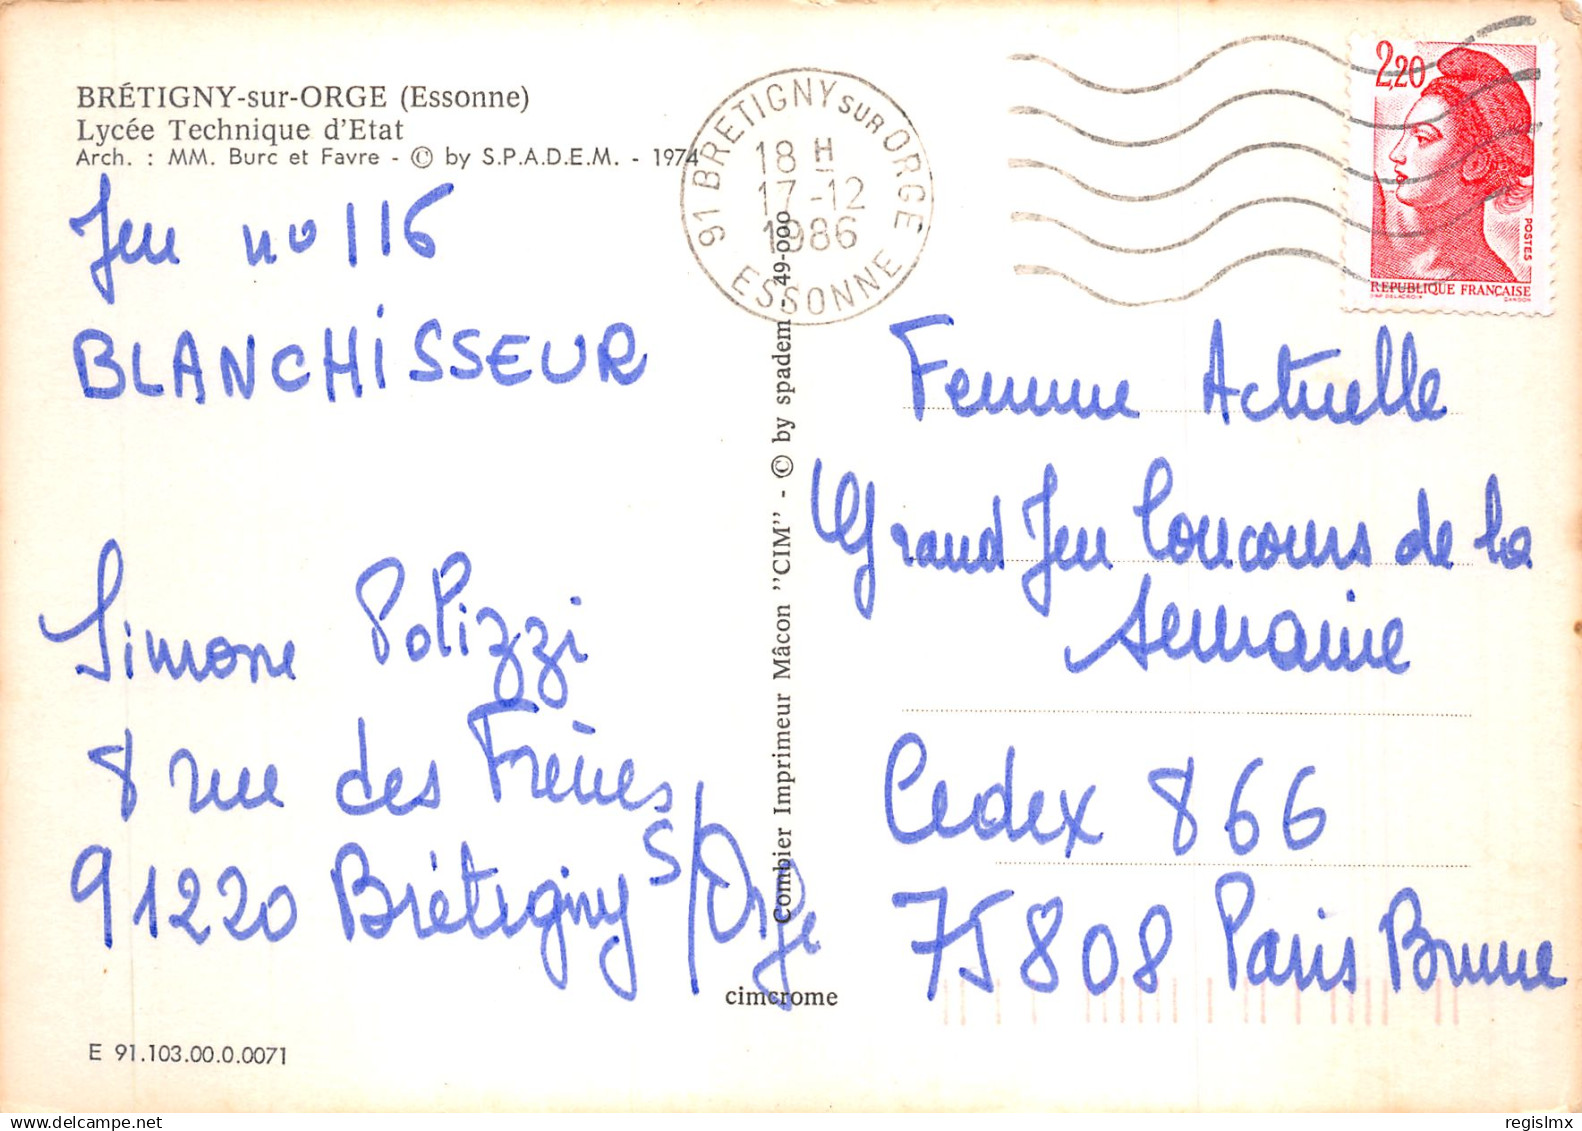 BRÉTIGNY-sur-ORGE (Essonne)
Lycée Technique d'Etat
Arch. : MM. Burc et Favre - © by S.P.A.D.E.M. - 1974
Jeu no 116
BLANCHISSEUR
Simone Polizzi
8 rue des Frènes
91220 Brétigny s/Orge
E 91.103.00.0.0071
Combier Imprimeur Mâcon "CIM" - © by spadem - 49-000
cimcrome
91 BRETIGNY SUR ORGE
18 H
17-12
1986
ESSONNE
2,20
POSTES
REPUBLIQUE FRANÇAISE
D'AP DELACROIX GANDON
Femme Actuelle
Grand Jeu Concours de la
semaine
Cedex 866
75808 Paris Brune
delcampe.net
regislmx